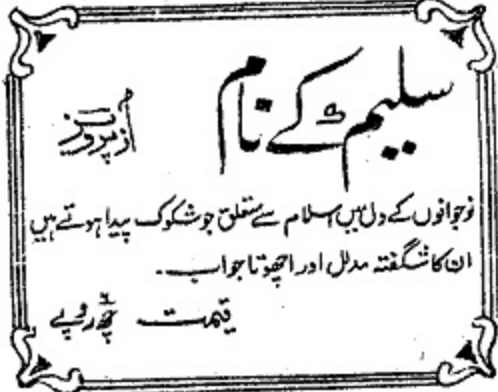 سلیم کے نام
از پرویز
نوجوانوں کے دل میں اسلام سے متعلق جو شکوک پیدا ہوتے ہیں
ان کا شگفتہ مدلل اور اچھوتا جواب۔
قیمت چھ روپے